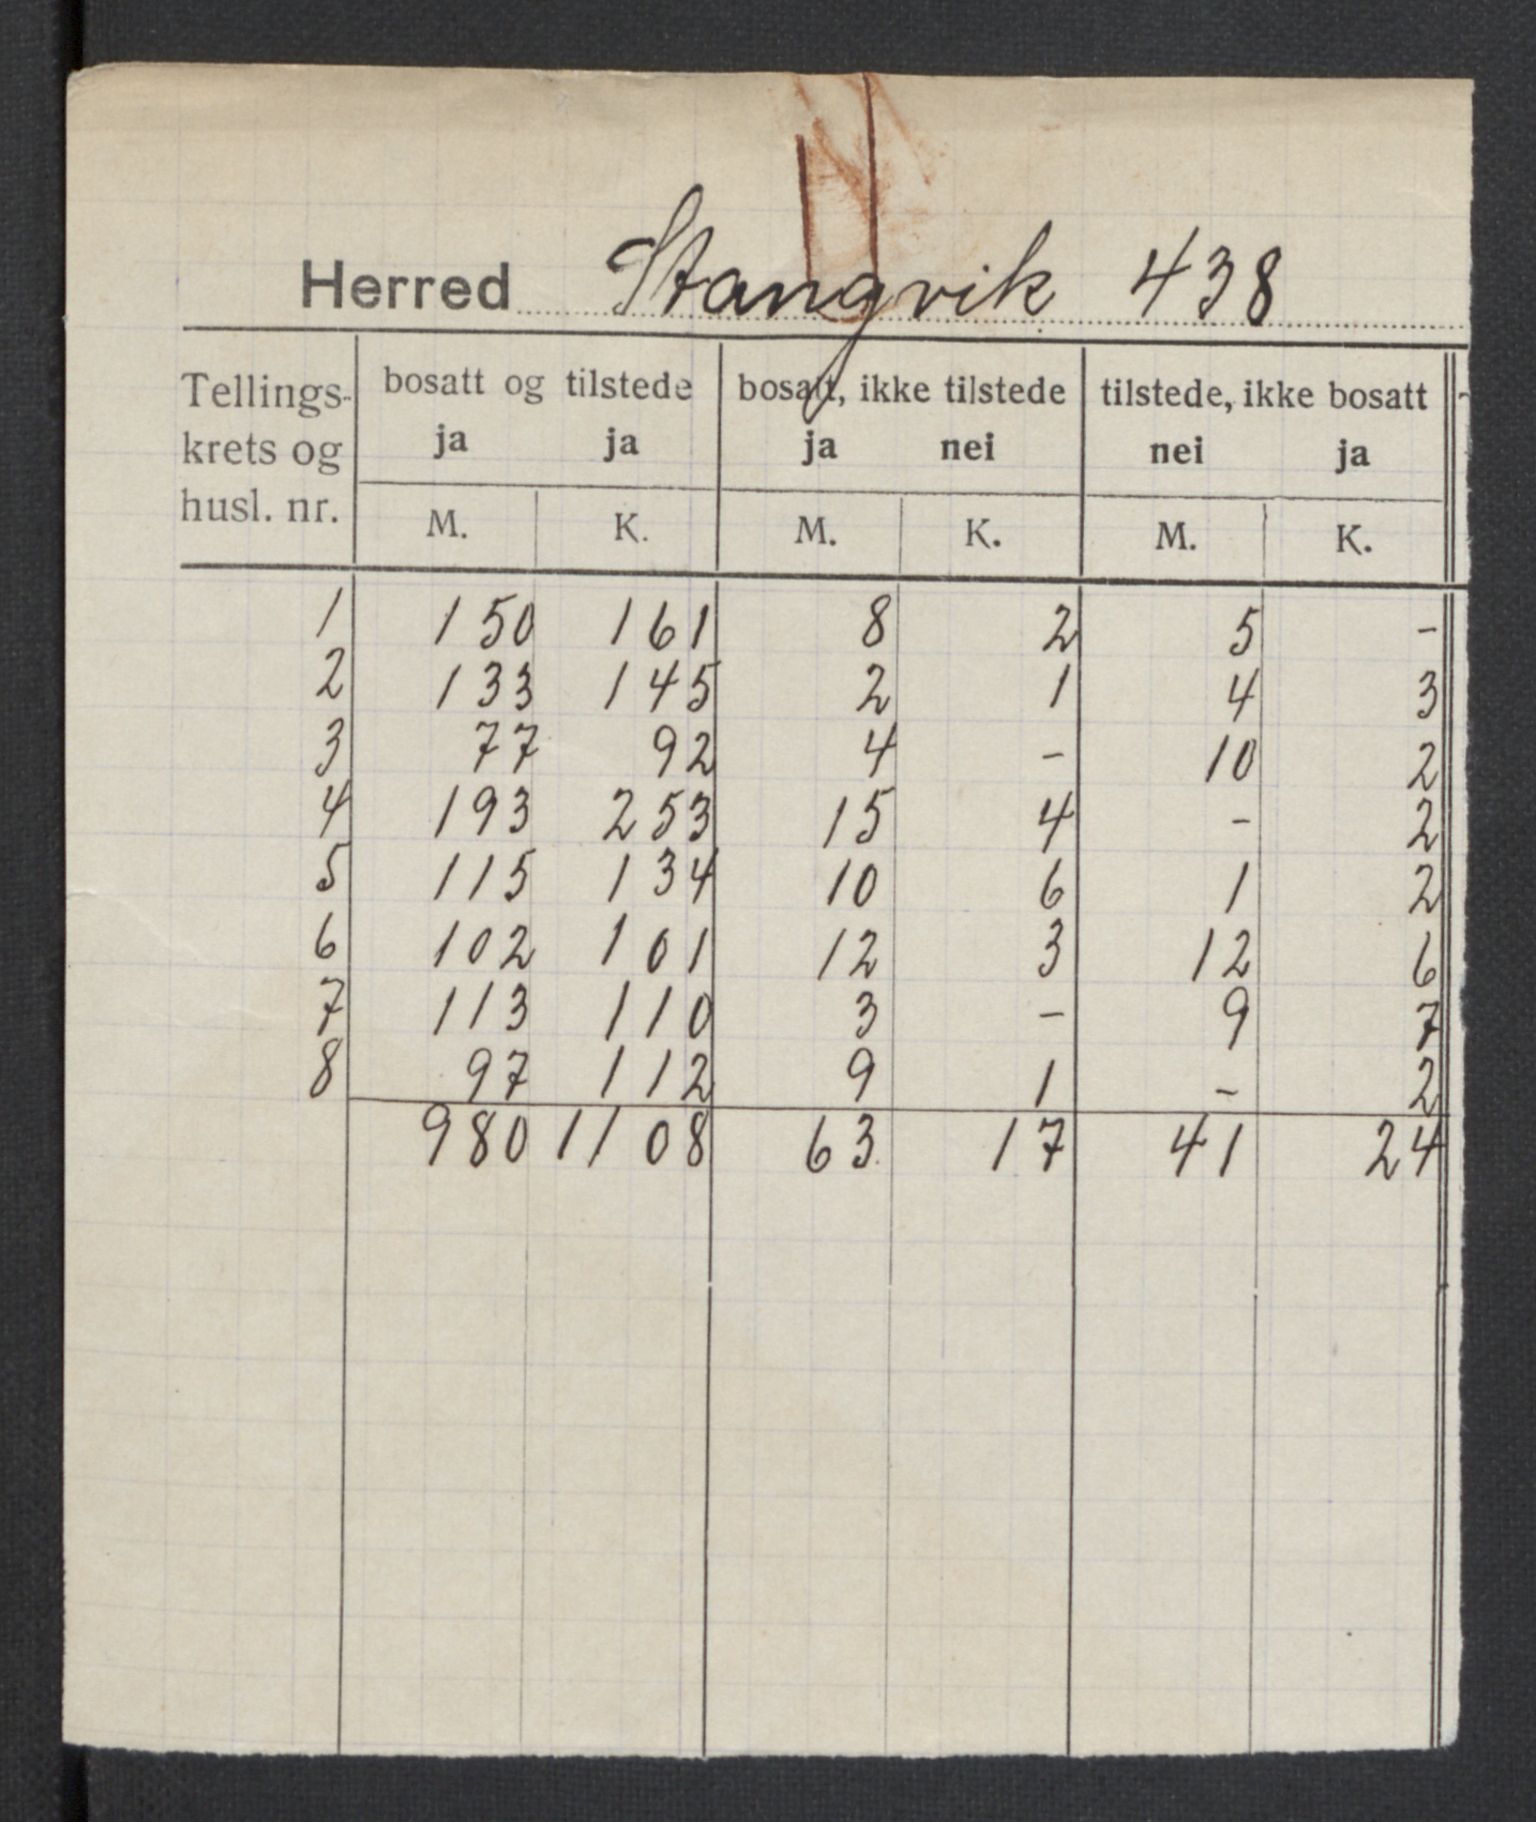 Herred Stangvik 438
Tellings- krets og husl. nr. | bosatt og tilstede | bosatt, ikke tilstede | tilstede, ikke bosatt
ja ja | ja nei | nei ja
M. K. | M. K. | M. K.
1 150 161 8 2 5 -
2 133 145 2 1 4 3
3 77 92 4 - 10 2
4 193 253 15 4 - 2
5 115 134 10 6 1 2
6 102 101 12 3 12 6
7 113 110 3 - 9 7
8 97 112 9 1 - 2
980 1108 63 17 41 24